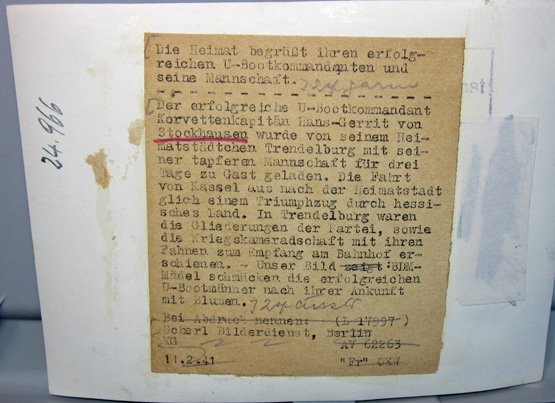 24.966
Die Heimat begrüßt ihren erfolg-
reichen U-Bootkommandanten und
seine Mannschaft.
Der erfolgreiche U-Bootkommandant
Korvettenkapitän Hans-Gerrit von
Stockhausen wurde von seinem Hei-
matstädtchen Trendelburg mit sei-
ner tapferen Mannschaft für drei
Tage zu Gast geladen. Die Fahrt
von Kassel aus nach der Heimatstadt
glich einem Triumphzug durch hessi-
sches Land. In Trendelburg waren
die Gliederungen der Partei, sowie
die Kriegskameradschaft mit ihren
Fahnen zum Empfang am Bahnhof er-
schienen. - Unser Bild zeigt:BDM-
Mädel schmücken die erfolgreichen
U-Bootmänner nach ihrer Ankunft
mit Blumen.
Bei Abdruck nennen: (L 17997 )
Scherl Bilderdienst, Berlin
AV 62263
11.2.41 "Fr"